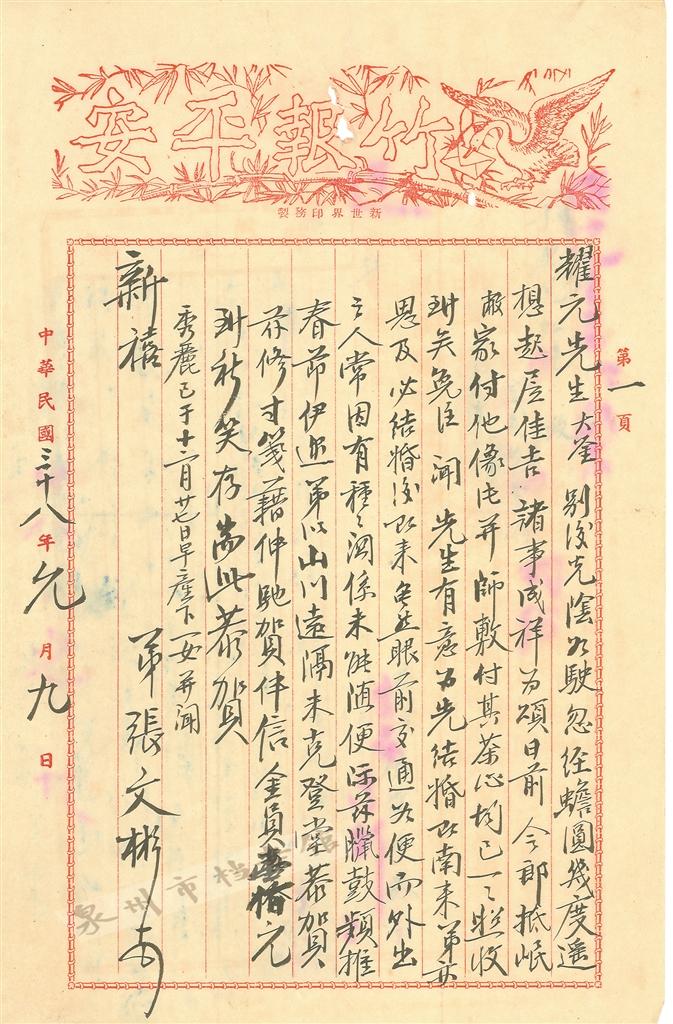 竹報平安
新世界印務製
第一頁
耀元先生大鉴 别後光陰如駛忽經蟾圓幾度遥
想起居佳吉諸事咸祥为頌日前 令郎抵岷
敝家付他像片并師敷付其茶心均已一一照收
玥矣免注 闻 先生有意为先结婚后南来 弟亦
思及必结婚後后来 虽然眼前交通为便而外出
之人常因有種種洞係未能随便 际兹臘鼓頻推
春节伊迩 弟以山川遠隔未克登堂恭賀
茲修寸箋藉伸馳賀伴信金員壹佰元
到祈笑存耑此恭賀
秀麗已于十二月廿七日早產下一女并闻
新禧
弟張文彬
中華民國三十八年元月九日
泉州市档